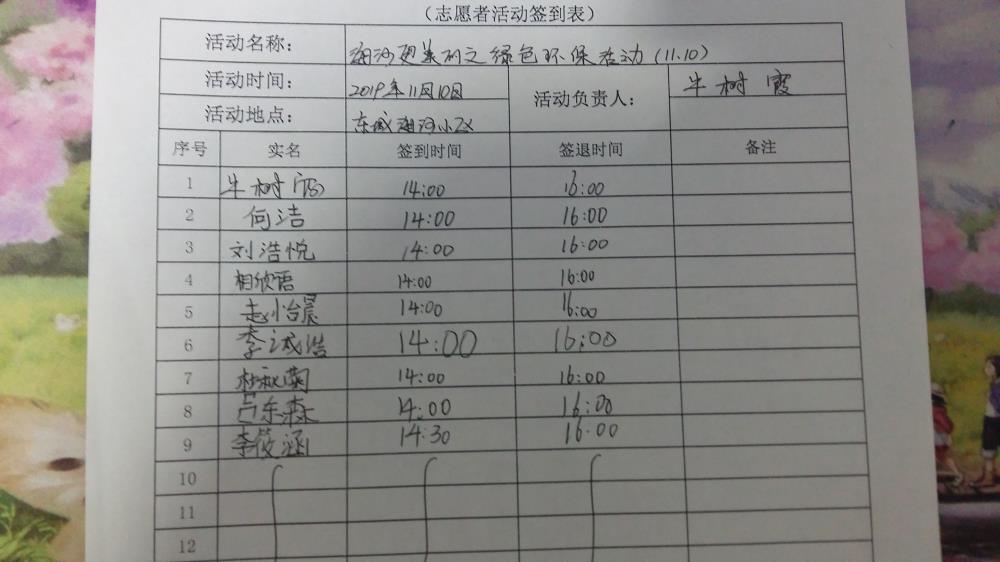 （志愿者活动签到表）
活动名称： 海河更美丽之绿色环保活动（11.10）
活动时间： 2019年11月10日 活动负责人： 牛树霞
活动地点： 东城海河小区
序号 实名 签到时间 签退时间 备注
1 牛树霞 14:00 16:00
2 何洁 14:00 16:00
3 刘浩悦 14:00 16:00
4 相欣语 14:00 16:00
5 赵小怡晨 14:00 16:00
6 李诚浩 14:00 16:00
7 杜秋菊 14:00 16:00
8 吕东森 14:00 16:00
9 李筱涵 14:30 16:00
10
11
12